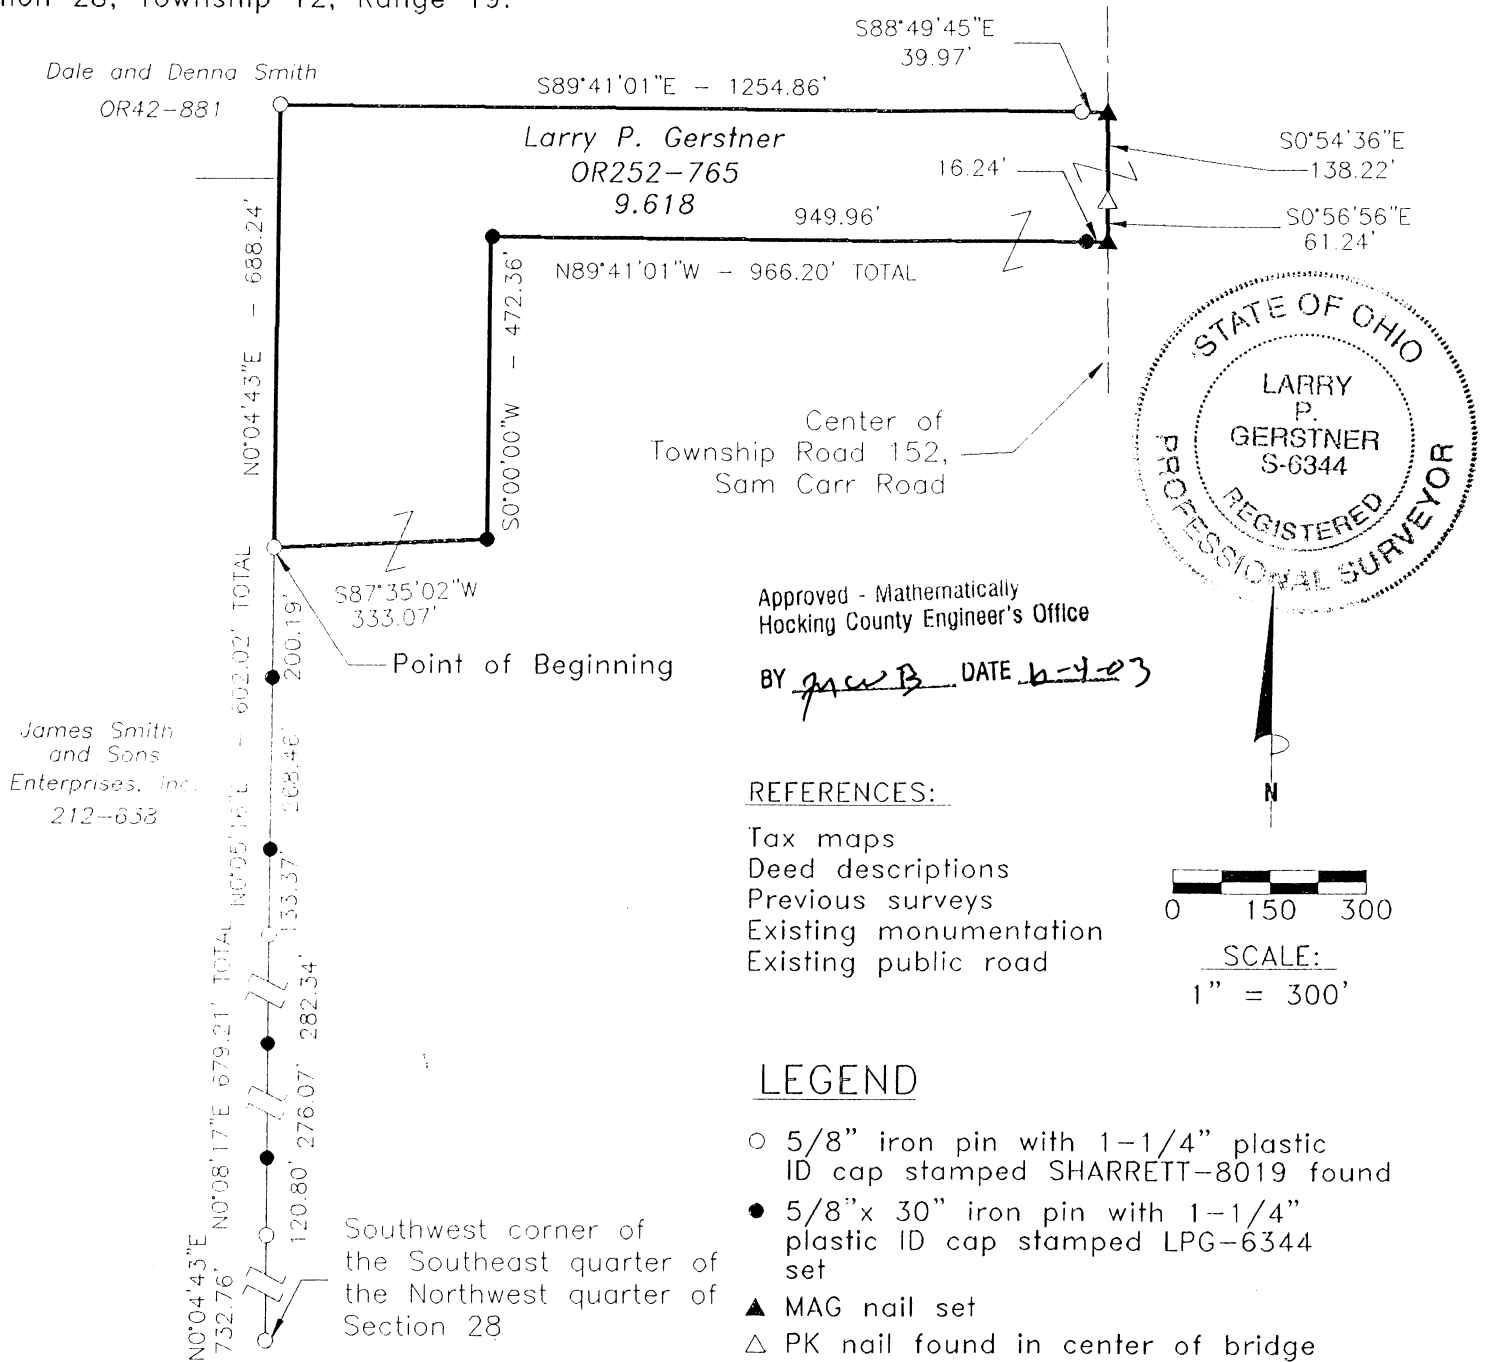 ion 28, Township 12, Range 19.
S88°49'45"E
39.97'
Dale and Denna Smith
OR42-881
S89°41'01"E - 1254.86'
Larry P. Gerstner
OR252-765
9.618
16.24'
S0°54'36"E
138.22'
949.96'
S0°56'56"E
61.24'
N89°41'01"W - 966.20' TOTAL
N0°04'43"E - 688.24'
S0°00'00"W - 472.36'
STATE OF OHIO
LARRY
P.
GERSTNER
S-6344
REGISTERED
PROFESSIONAL SURVEYOR
Center of
Township Road 152,
Sam Carr Road
S87°35'02"W
333.07'
Point of Beginning
Approved - Mathematically
Hocking County Engineer's Office
BY DATE 6-4-03
N0°05'16"E - 602.02' TOTAL
200.19'
268.46'
133.37'
James Smith
and Sons
Enterprises, Inc.
212-638
N
REFERENCES:
Tax maps
Deed descriptions
Previous surveys
Existing monumentation
Existing public road
0 150 300
SCALE:
1" = 300'
N0°08'17"E 679.21' TOTAL
282.34'
276.07'
120.80'
N0°04'43"E
732.76'
Southwest corner of
the Southeast quarter of
the Northwest quarter of
Section 28
LEGEND
5/8" iron pin with 1-1/4" plastic
ID cap stamped SHARRETT-8019 found
5/8"x 30" iron pin with 1-1/4"
plastic ID cap stamped LPG-6344
set
MAG nail set
PK nail found in center of bridge